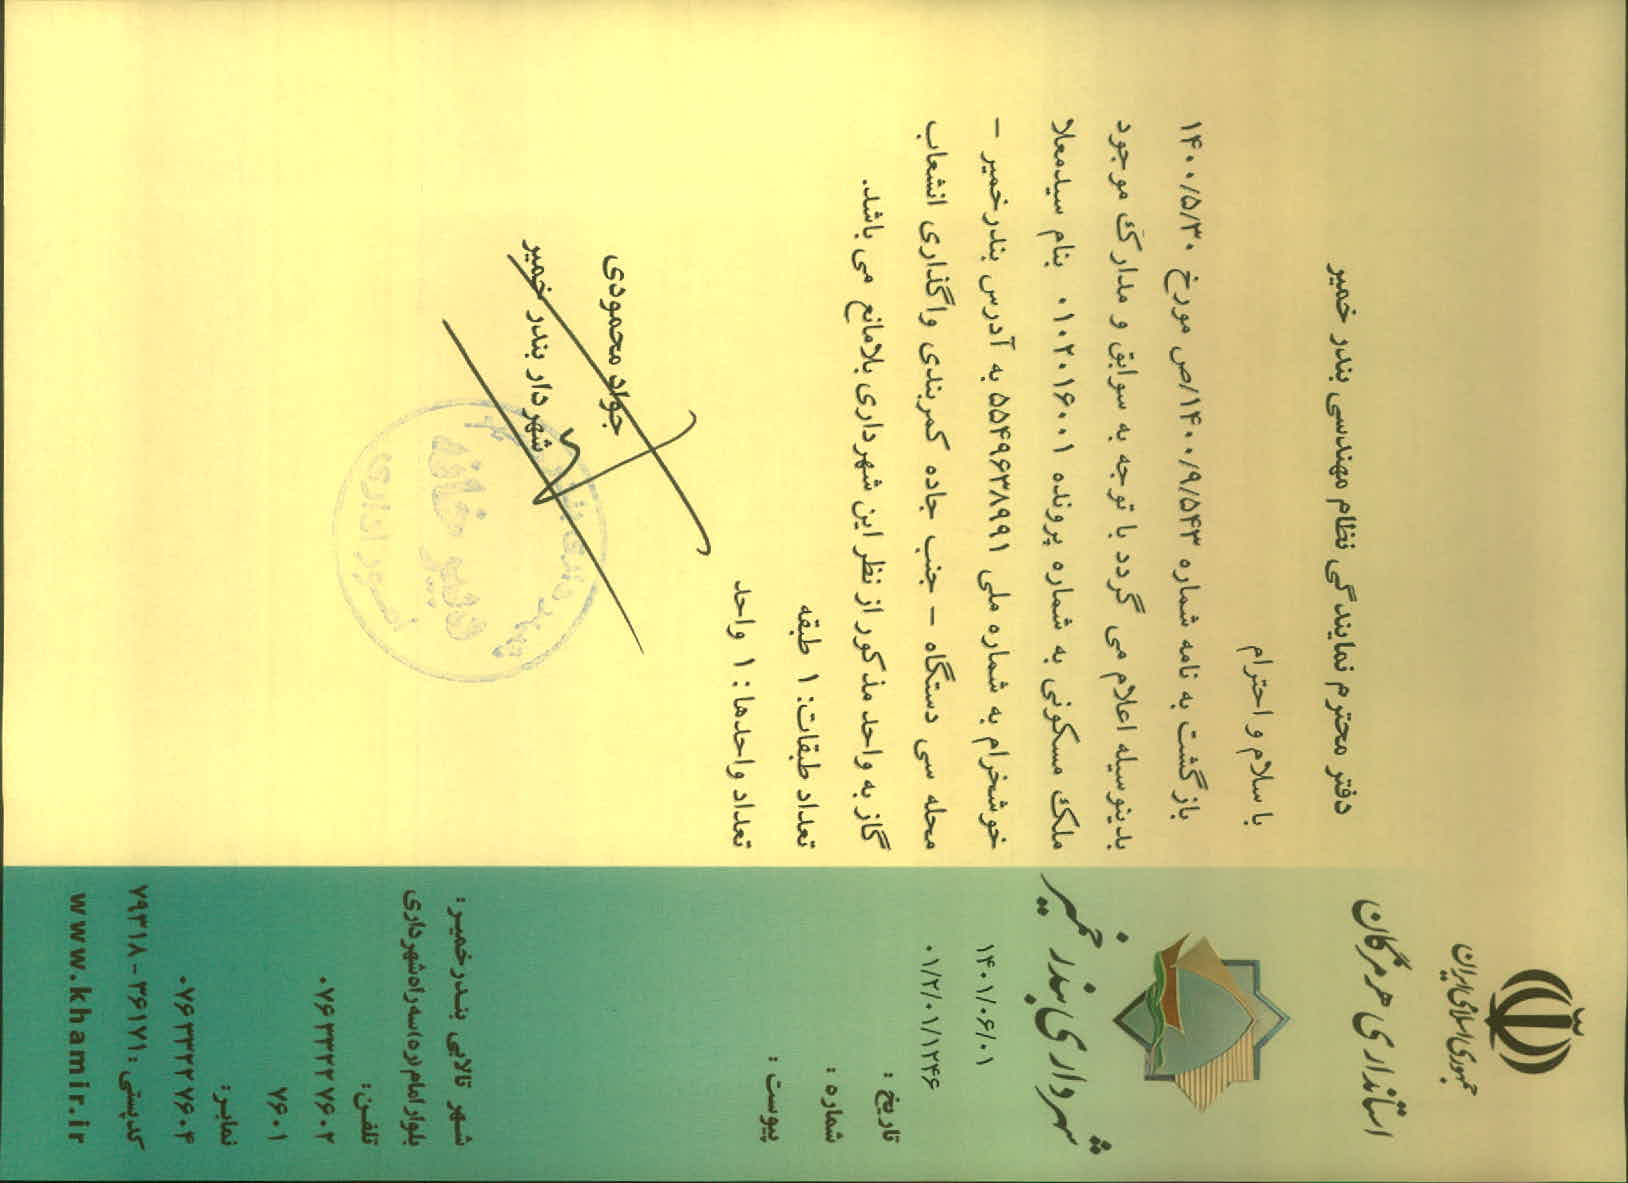 جمهوری اسلامی ایران
استانداری هرمزگان
شهرداری بندر خمیر
۱۴۰۱/۰۶/۰۱
۰۱/۲/۰۱/۱۲۴۶
تاریخ :
شماره :
پیوست :
دفتر محترم نمایندگی نظام مهندسی بندر خمیر
با سلام و احترام
بازگشت به نامه شماره ۱۴۰۰/۹/۵۴۳/ص مورخ ۱۴۰۰/۵/۳۰
بدینوسیله اعلام می گردد با توجه به سوابق و مدارک موجود
ملک مسکونی به شماره پرونده ۰۱۰۲۰۱۶۰۰۱ بنام سیدمعلا
خوشخرام به شماره ملی ۵۵۴۹۶۳۸۹۹۱ به آدرس بندرخمیر –
محله سی دستگاه – جنب جاده کمربندی واگذاری انشعاب
گاز به واحد مذکور از نظر این شهرداری بلامانع می باشد.
تعداد طبقات: ۱ طبقه
تعداد واحدها: ۱ واحد
جواد محمودی
شهردار بندر خمیر
دبیرخانه
امور اداری
شهر تالابی بندرخمیر:
بلوار امام(ره)سه راه شهرداری
تلفن:
۰۷۶۳۳۲۲۷۶۰۲
۷۶۰۱
نمابر:
۰۷۶۳۳۲۲۷۶۰۴
کدپستی : ۳۶۱۷۱-۷۹۳۱۸
www.khamir.ir